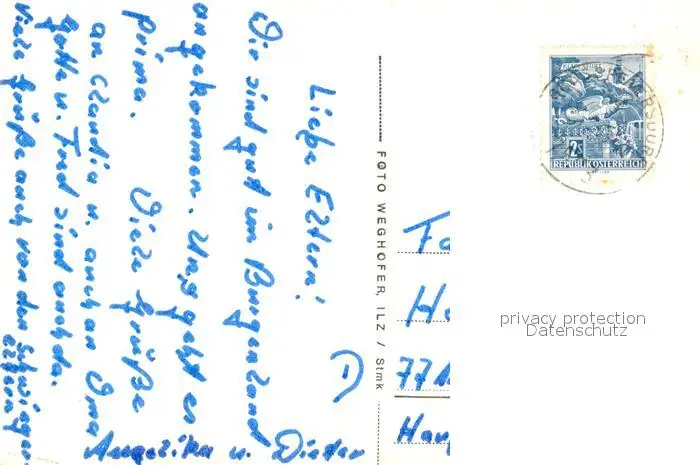 Liebe Eltern!
Wir sind gut im Burgenland
angekommen. Uns geht es
prima. Viele Grüße
an Claudia u. auch an Oma
u. Fred sind
viele Grüße auch von den
eltern
Angelika u. Dieter
FOTO WEGHOFER, ILZ / Stmk
Fa
He
771
Hau
KLAGENFURT
2S
REPUBLIK ÖSTERREICH
privacy protection
Datenschutz